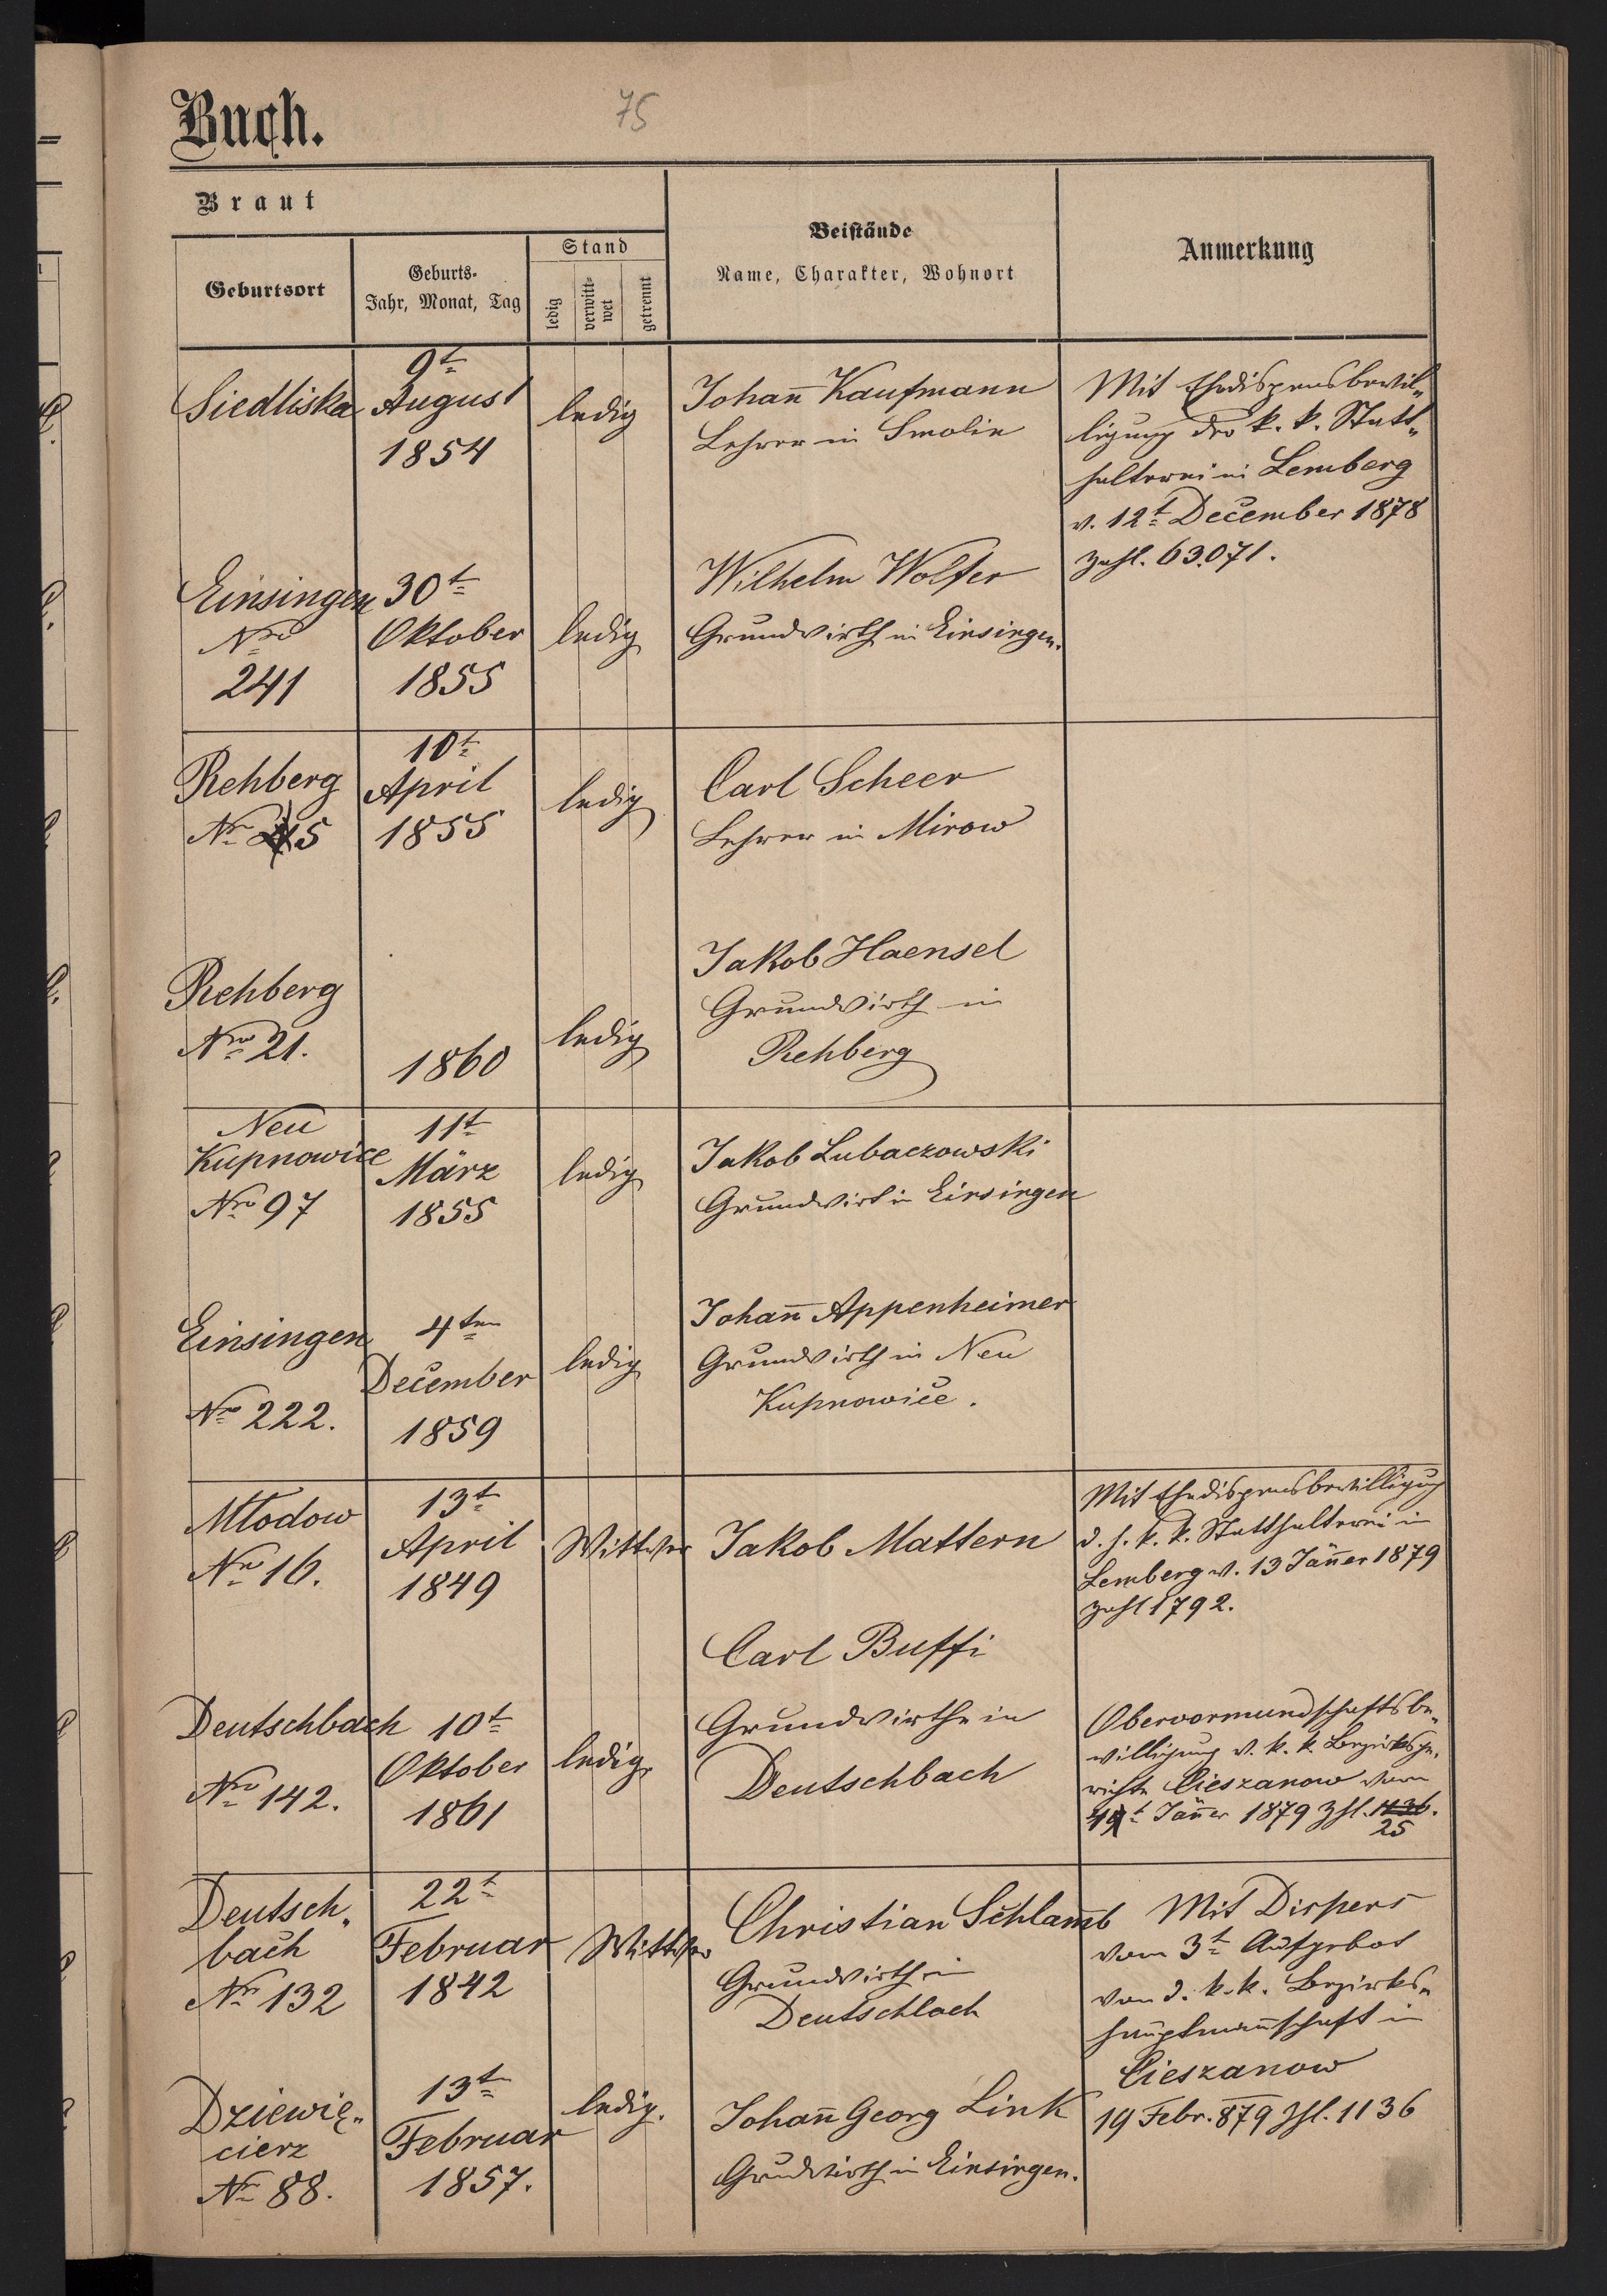 Buch.
75
Braut
Geburtsort
Geburts-
Jahr, Monat, Tag
Stand
ledig
verwitt-
wet
getrennt
Beistände
Name, Charakter, Wohnort
Anmerkung
Siedliska
9t
August
1854
ledig
Johañ Kaufmann
Lehrer in Smolin
Mit Ehedispensbewil„
ligung der k. k. Statt„
halterei in Lemberg
v. 12t December 1878
Zahl. 63.071.
Einsingen
Nro
241
30t
Oktober
1855
ledig
Wilhelm Wolfer
Grundwirth in Einsingen.
Rehberg
Nr 5
10t
April
1855
ledig
Carl Scheer
Lehrer in Mirow
Rehberg
Nro 21.
1860
ledig
Jakob Haensel
Grundwirth in
Rehberg
Neu
Kupnowice
Nro 97
11t
März
1855
ledig
Jakob Lubaczowski
Grundwirt in Einsingen
Einsingen
Nro 222.
4ten
December
1859
ledig
Johañ Appenheimer
Grundwirth in Neu
Kupnowice.
Młodow
Nro 16.
13t
April
1849
Wittwe
Jakob Mattern
Mit Ehedispensbewilligung
d. h. k. k. Statthalterei in
Lemberg v. 13 Jäñer 1879
Zahl 1792.
Deutschbach
Nro 142.
10t
Oktober
1861
ledig.
Carl Buffi
Grundwirthe in
Deutschbach
Obervormundschaftsbe„
willigung v. k. k. Bezirksge„
richte Cieszanow vom
19t Jäñer 1879 Zhl. 1136.
25
Deutsch„
bach
Nr 132
22t
Februar
1842
Wittwe
Christian Schlam̄b
Grundwirth in
Deutschbach
Mit Dispens
vom 3t Aufgebot
von d. k. k. Bezirks„
hauptmañschaft in
Cieszanow
19 Febr. 879 Zhl. 1136
Dziewię„
cierz
Nr 88.
13t
Februar
1857.
ledig.
Johañ Georg Link
Grundwirth in Einsingen.